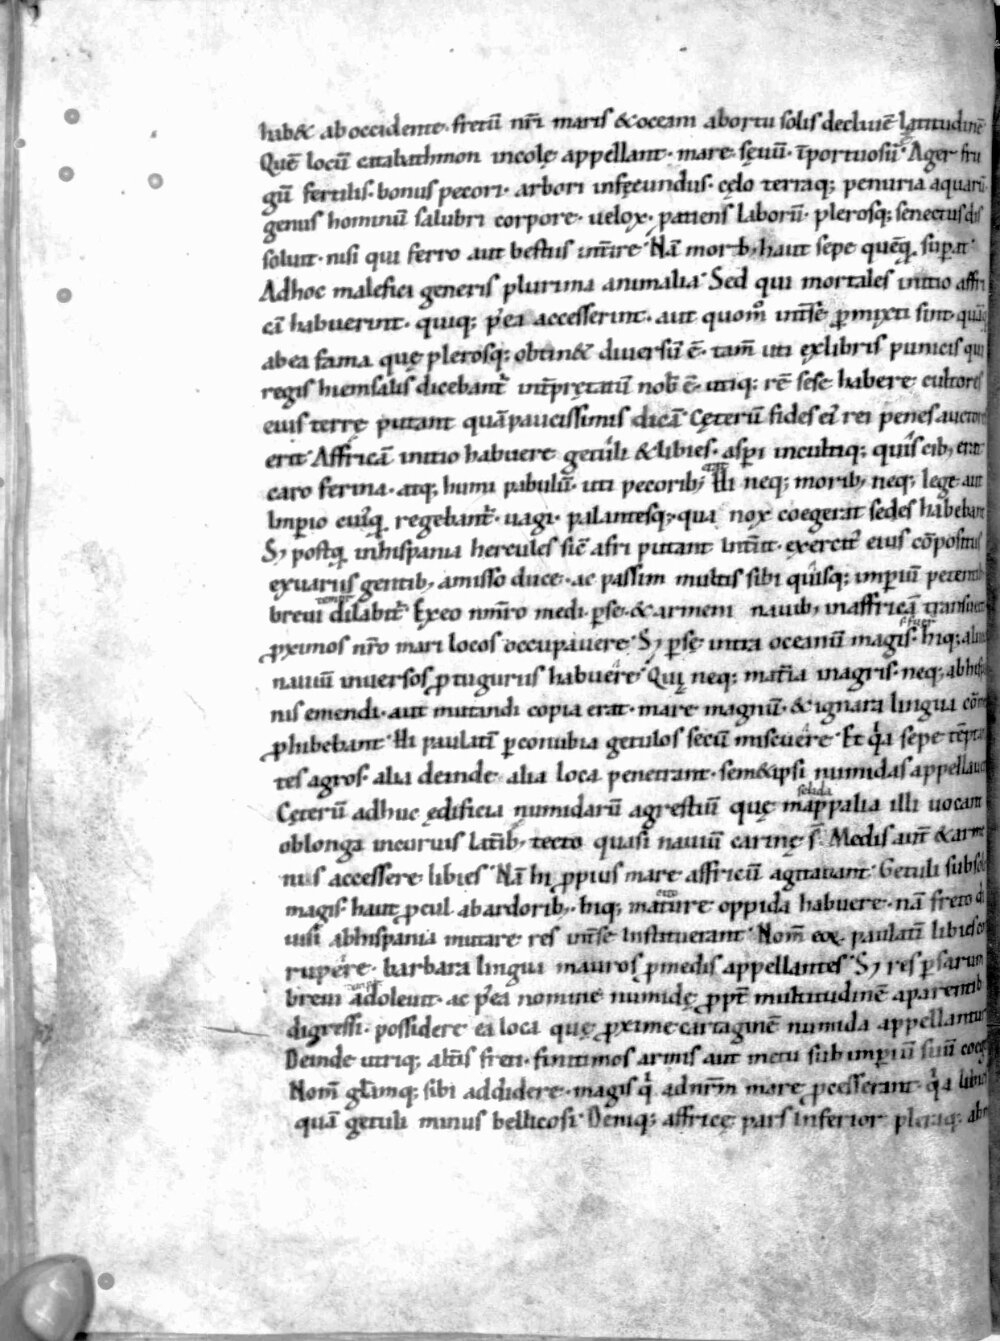 hab& ab occidente· fretū nr̄i maris & oceani ab ortu solis decliuē latitudinē
Quē locū catabathmon incole appellant· mare sęuū· īportuosū· Ager fru
gū fertilis· bonus pecori· arbori infęcundus· cęlo terraq; penuria aquarū·
genus hominū salubri corpore· uelox· patiens laborū· plerosq; senectus dis
soluit· nisi qui ferro aut bestiis int̄ire· Nā morb; haut sepe quēq̨ sup̱at·
Adhoc malefici generis plurima animalia· Sed qui mortales initio affri
cā habuerint· quiq; p̄ea accesserint· aut quom̊ int̄se p̱mixti sint· quāq̄
ab ea fama quę plerosq; obtin& diuersū ē· tam̄ uti ex libris punicis qui
regis hiemsalis dicebant᷑ int̄p̄tatū nob̄ ē· utiq; rē sese habere cultores
eius terrę putant quā paucissimis dicā· Cęterū fides ei᷑ rei penes auctores
erit· Affricā initio habuere getuli & libies· asp̱i incultiq; quis cib; erat
caro ferina· atq; humi pabulū· uti pecorib; Hi neq; morib; neq; lege aut
Imp̱io cuiq̨ regebant᷑· uagi· palantesq; qua nox coegerat sedes habebant
S; postq̨ in hispania hercules sic̄ afri putant int̄iit· exercit᷑ eius cōpositus
ex uariis gentib; amisso duce· ac passim multis sibi quisq; imp̱iū petentib
tempr̄
breui dilabit᷑ Ex eo num̄ro medi· p̱se· & armeni nauib; in affricā transuecti
p̱ximos nr̄o mari locos occupauere· S; p̱sę intra oceanū magis· hiq; alueos
nauiū inuersos p̱ tuguriis habuere· Quį neq; mat̄ia in agris· neq; ab hispa
nis emendi· aut mutandi copia erat· mare magnū· & ignara lingua cōm
p̱hibebant· Hi paulatī p̱ conubia getulos secū miscuere· Et qͥa sepe tēptan
tes agros· alia deinde alia loca penetrant· sem&ipsi numidas appellauer
solida
Cęterū adhuc ędificia numidarū agrestiū quę mappalia illi uocant
oblonga incuruis lat̄ib; tecto quasi nauiū carinę s̄· Medis aut̄ & arme
niis accessere libies· Nā hi p̱pius mare affricū agitauant· Getuli sub sole
magis· haut p̱cul ab ardorib; hiq; mature oppida habuere· nā freto di
uisi ab hispania mutare res int̄se instituerant· Nom̄ eoꝝ paulatī libies cor
rupere· barbara lingua mauros p̱ medis appellantes· S; res p̱sarum
breui adoleuit· ac p̄ea nomine numidę p̱pt̄ multitudinē a parentib
digressi· possidere ea loca quę p̱xime cartaginē numida appellantur
Deinde utriq; alt̄is freti· finitimos armis aut metu sub imp̱iū suū coeg
Nom̄ gl̄amq; sibi addidere· magis qͥ ad nr̄m mare p̱cesserant· qͥa libies
quā getuli minus bellicosi· Deniq; affricę pars inferior pleraq; ab n